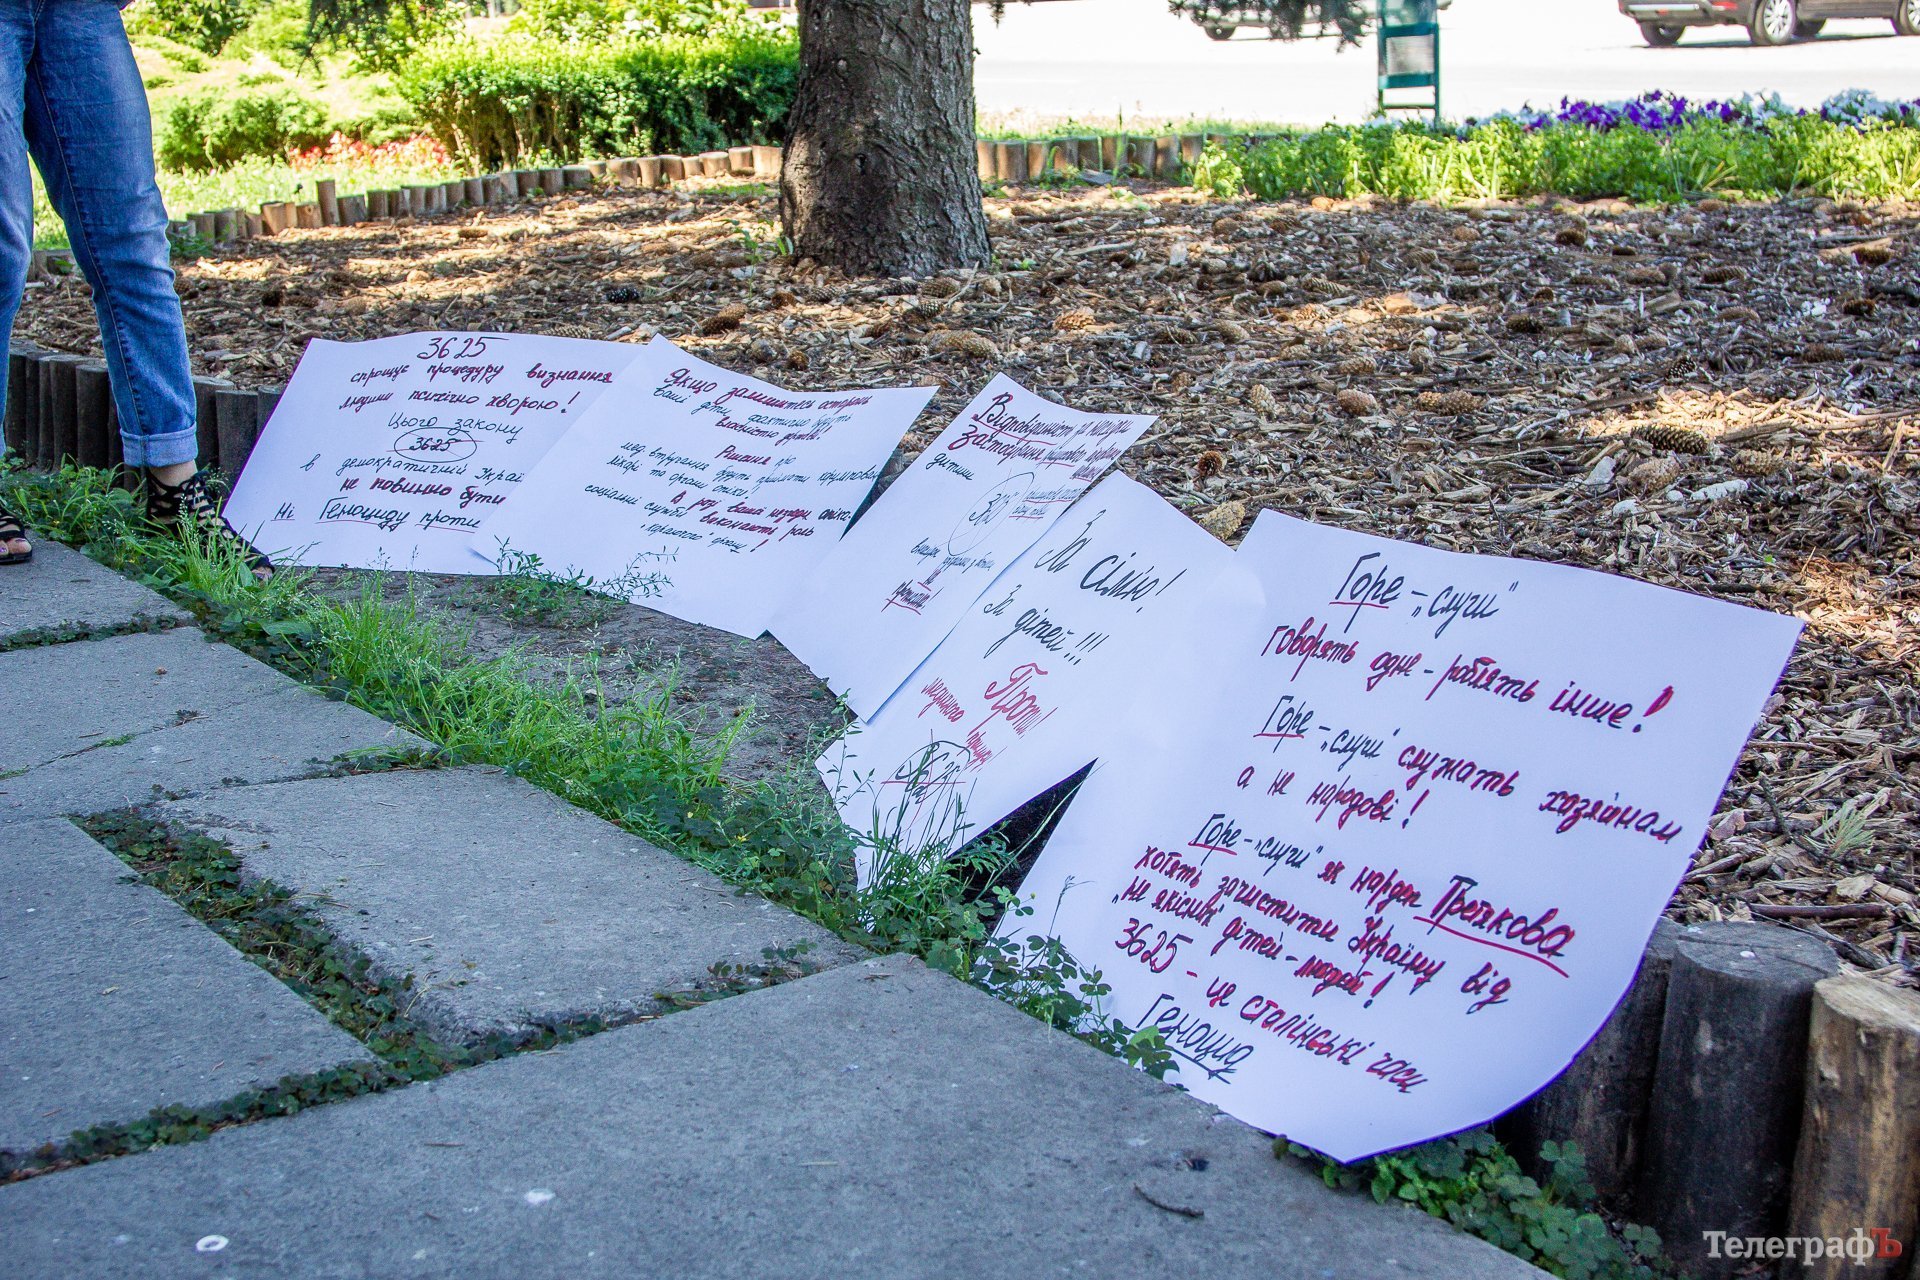 3625
спрощує процедуру визнання
людини психічно хворою!
Цього закону
3625
в демократичній Украї
не повинно бути
Ні Геноциду проти
Якщо залишитесь осторонь
ваші діти фактично будуть
власністю держави!
Рішення про
мед втручання будуть приймати
лікарі та органи опіки!
В разі вашої незгоди
соціальні служби виконають роль
"караючого" органу!
Відповідальність за
Застосування
дитини
3625
не
За сімю!
За дітей!!!
Проти!
медичного
3625
Горе-„слуги"
говорять одне - роблять інше!
Горе-„слуги" служать хазяїнам
а не народові!
Горе-„слуги" як нардеп Третякова
хотять зачистити Україну від
„не якісних" дітей - людей!
3625 - це сталінські часи
Геноцид
ТелеграфЪ